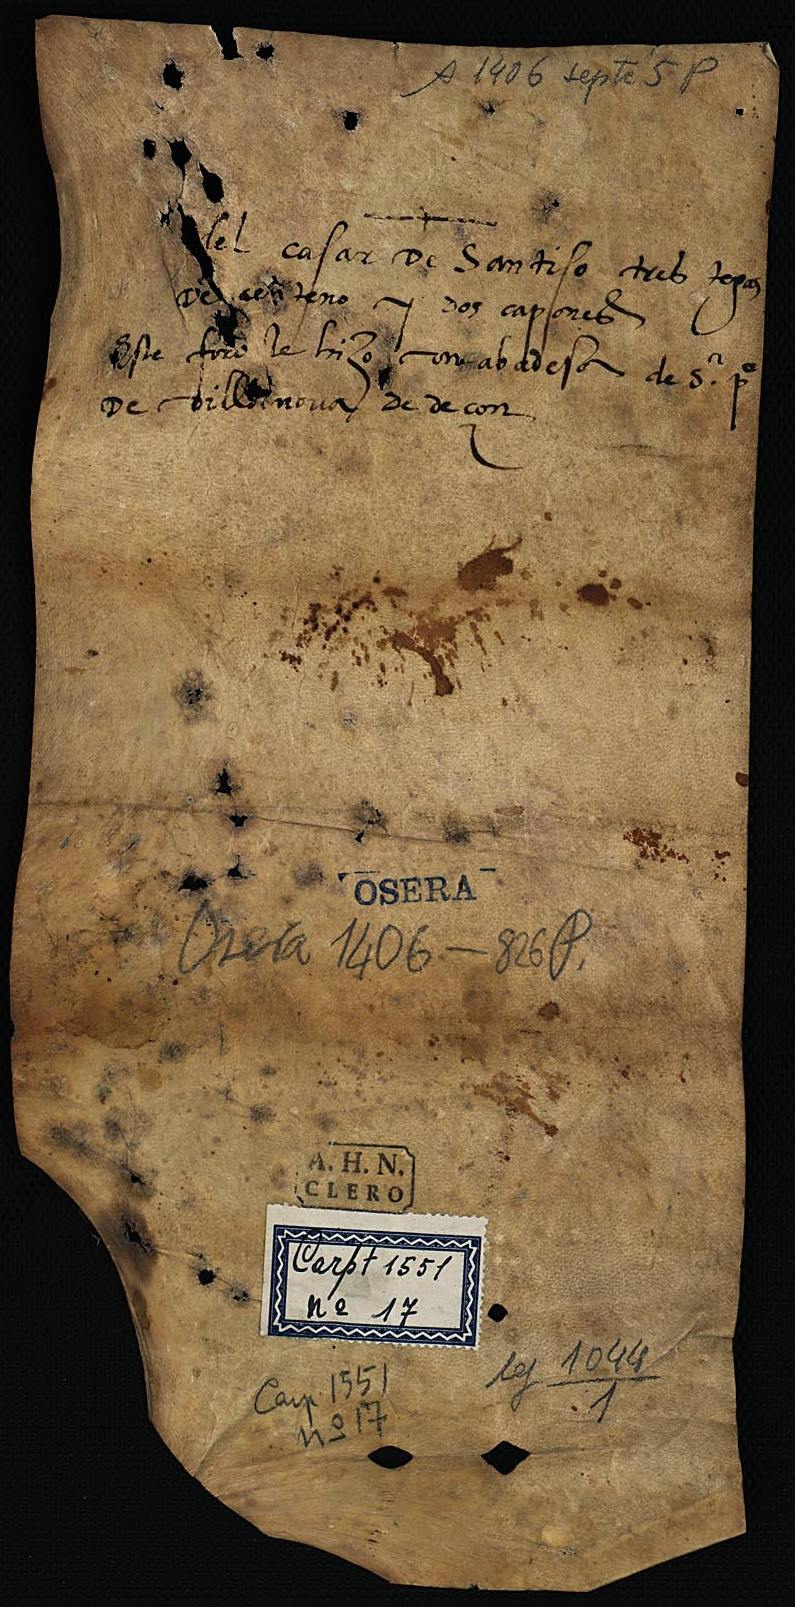 A 1406 septe 5 P
del casar De Santiso tres tegas
De centeno y dos capones
Este foro le hizo con abadesa de S.n p.o
De villanova de de con
OSERA
Osera 1406 — 826 P.
A. H. N.
CLERO
Carpt 1551
nº 17
leg 1044
1
Carp 1551
nº 17